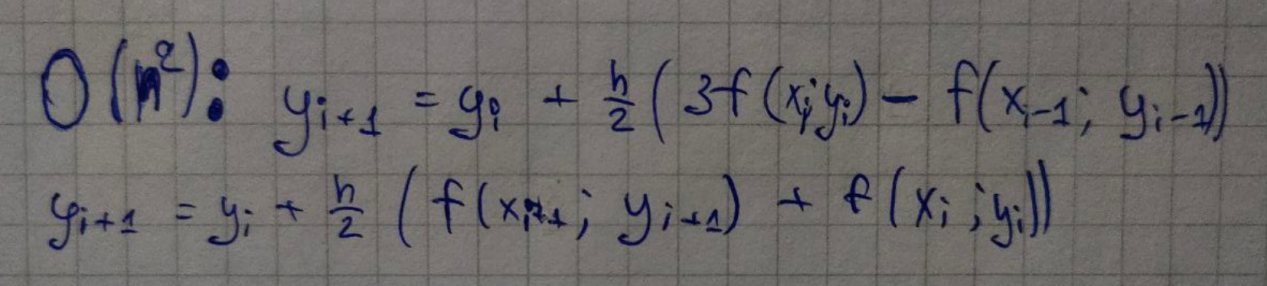 O(h²): y_{i+1} = y_i + h/2 (3f(x_i; y_i) − f(x_{i-1}; y_{i-1}))
y_{i+1} = y_i + h/2 (f(x_{i+1}; y_{i+1}) + f(x_i; y_i))